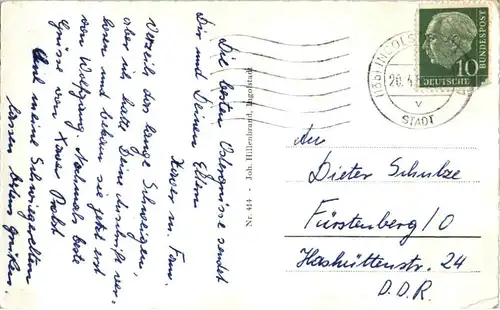 Die besten Ostergrüsse sendet
Dir und Deinen Eltern
Xaver u. Fam.
Verzeih das lange Schweigen,
aber ich hatte Deine Anschrift ver-
loren und bekam sie jetzt erst
von Wolfgang. Nochmals beste
Grüsse von Xaver Probst
Auch meine Schwiegereltern
lassen Grüßen.
Nr. 414 - Joh. Hillenbrand, Ingolstadt
INGOLSTADT
20.4
v
STADT
10
BUNDESPOST
DEUTSCHE
An
Dieter Schulze
Fürstenberg/O
Hashüttenstr. 24
D.D.R.